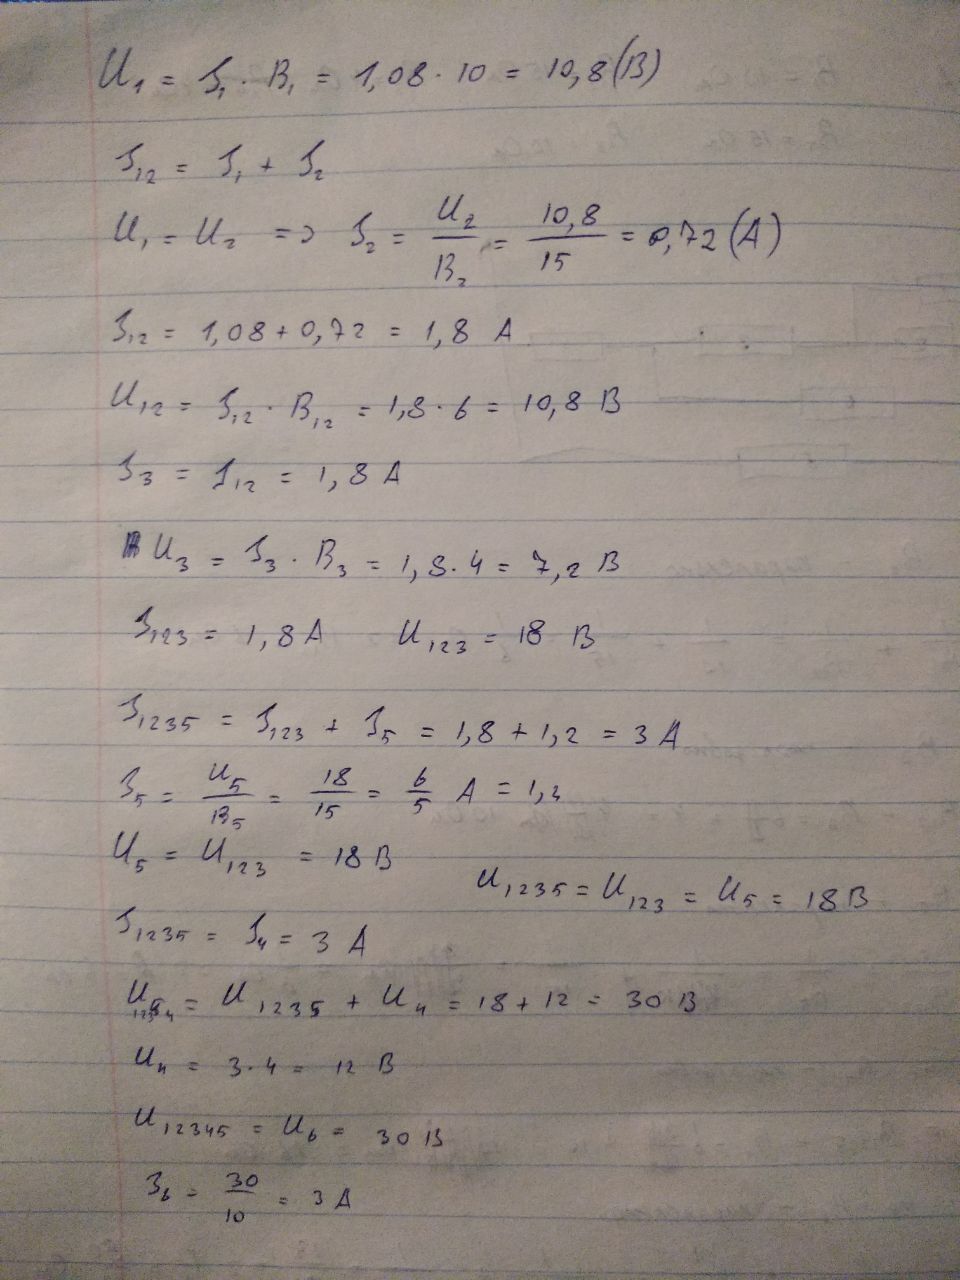 U₁ = I₁ · R₁ = 1,08 · 10 = 10,8 (В)
I₁₂ = I₁ + I₂
U₁ = U₂ => I₂ = U₂/R₂ = 10,8/15 = 0,72 (А)
I₁₂ = 1,08 + 0,72 = 1,8 А
U₁₂ = I₁₂ · R₁₂ = 1,8 · 6 = 10,8 В
I₃ = I₁₂ = 1,8 А
U₃ = I₃ · R₃ = 1,8 · 4 = 7,2 В
I₁₂₃ = 1,8 А U₁₂₃ = 18 В
I₁₂₃₅ = I₁₂₃ + I₅ = 1,8 + 1,2 = 3 А
I₅ = U₅/R₅ = 18/15 = 6/5 А = 1,2
U₅ = U₁₂₃ = 18 В
U₁₂₃₅ = U₁₂₃ = U₅ = 18 В
I₁₂₃₅ = I₄ = 3 А
U₁₂₃₅₄ = U₁₂₃₅ + U₄ = 18 + 12 = 30 В
U₄ = 3 · 4 = 12 В
U₁₂₃₄₅ = U₆ = 30 В
I₆ = 30/10 = 3 А